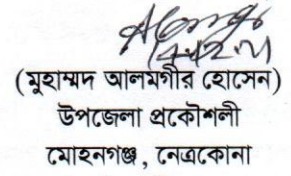 (মুহাম্মদ আলমগীর হোসেন)
উপজেলা প্রকৌশলী
মোহনগঞ্জ, নেত্রকোনা